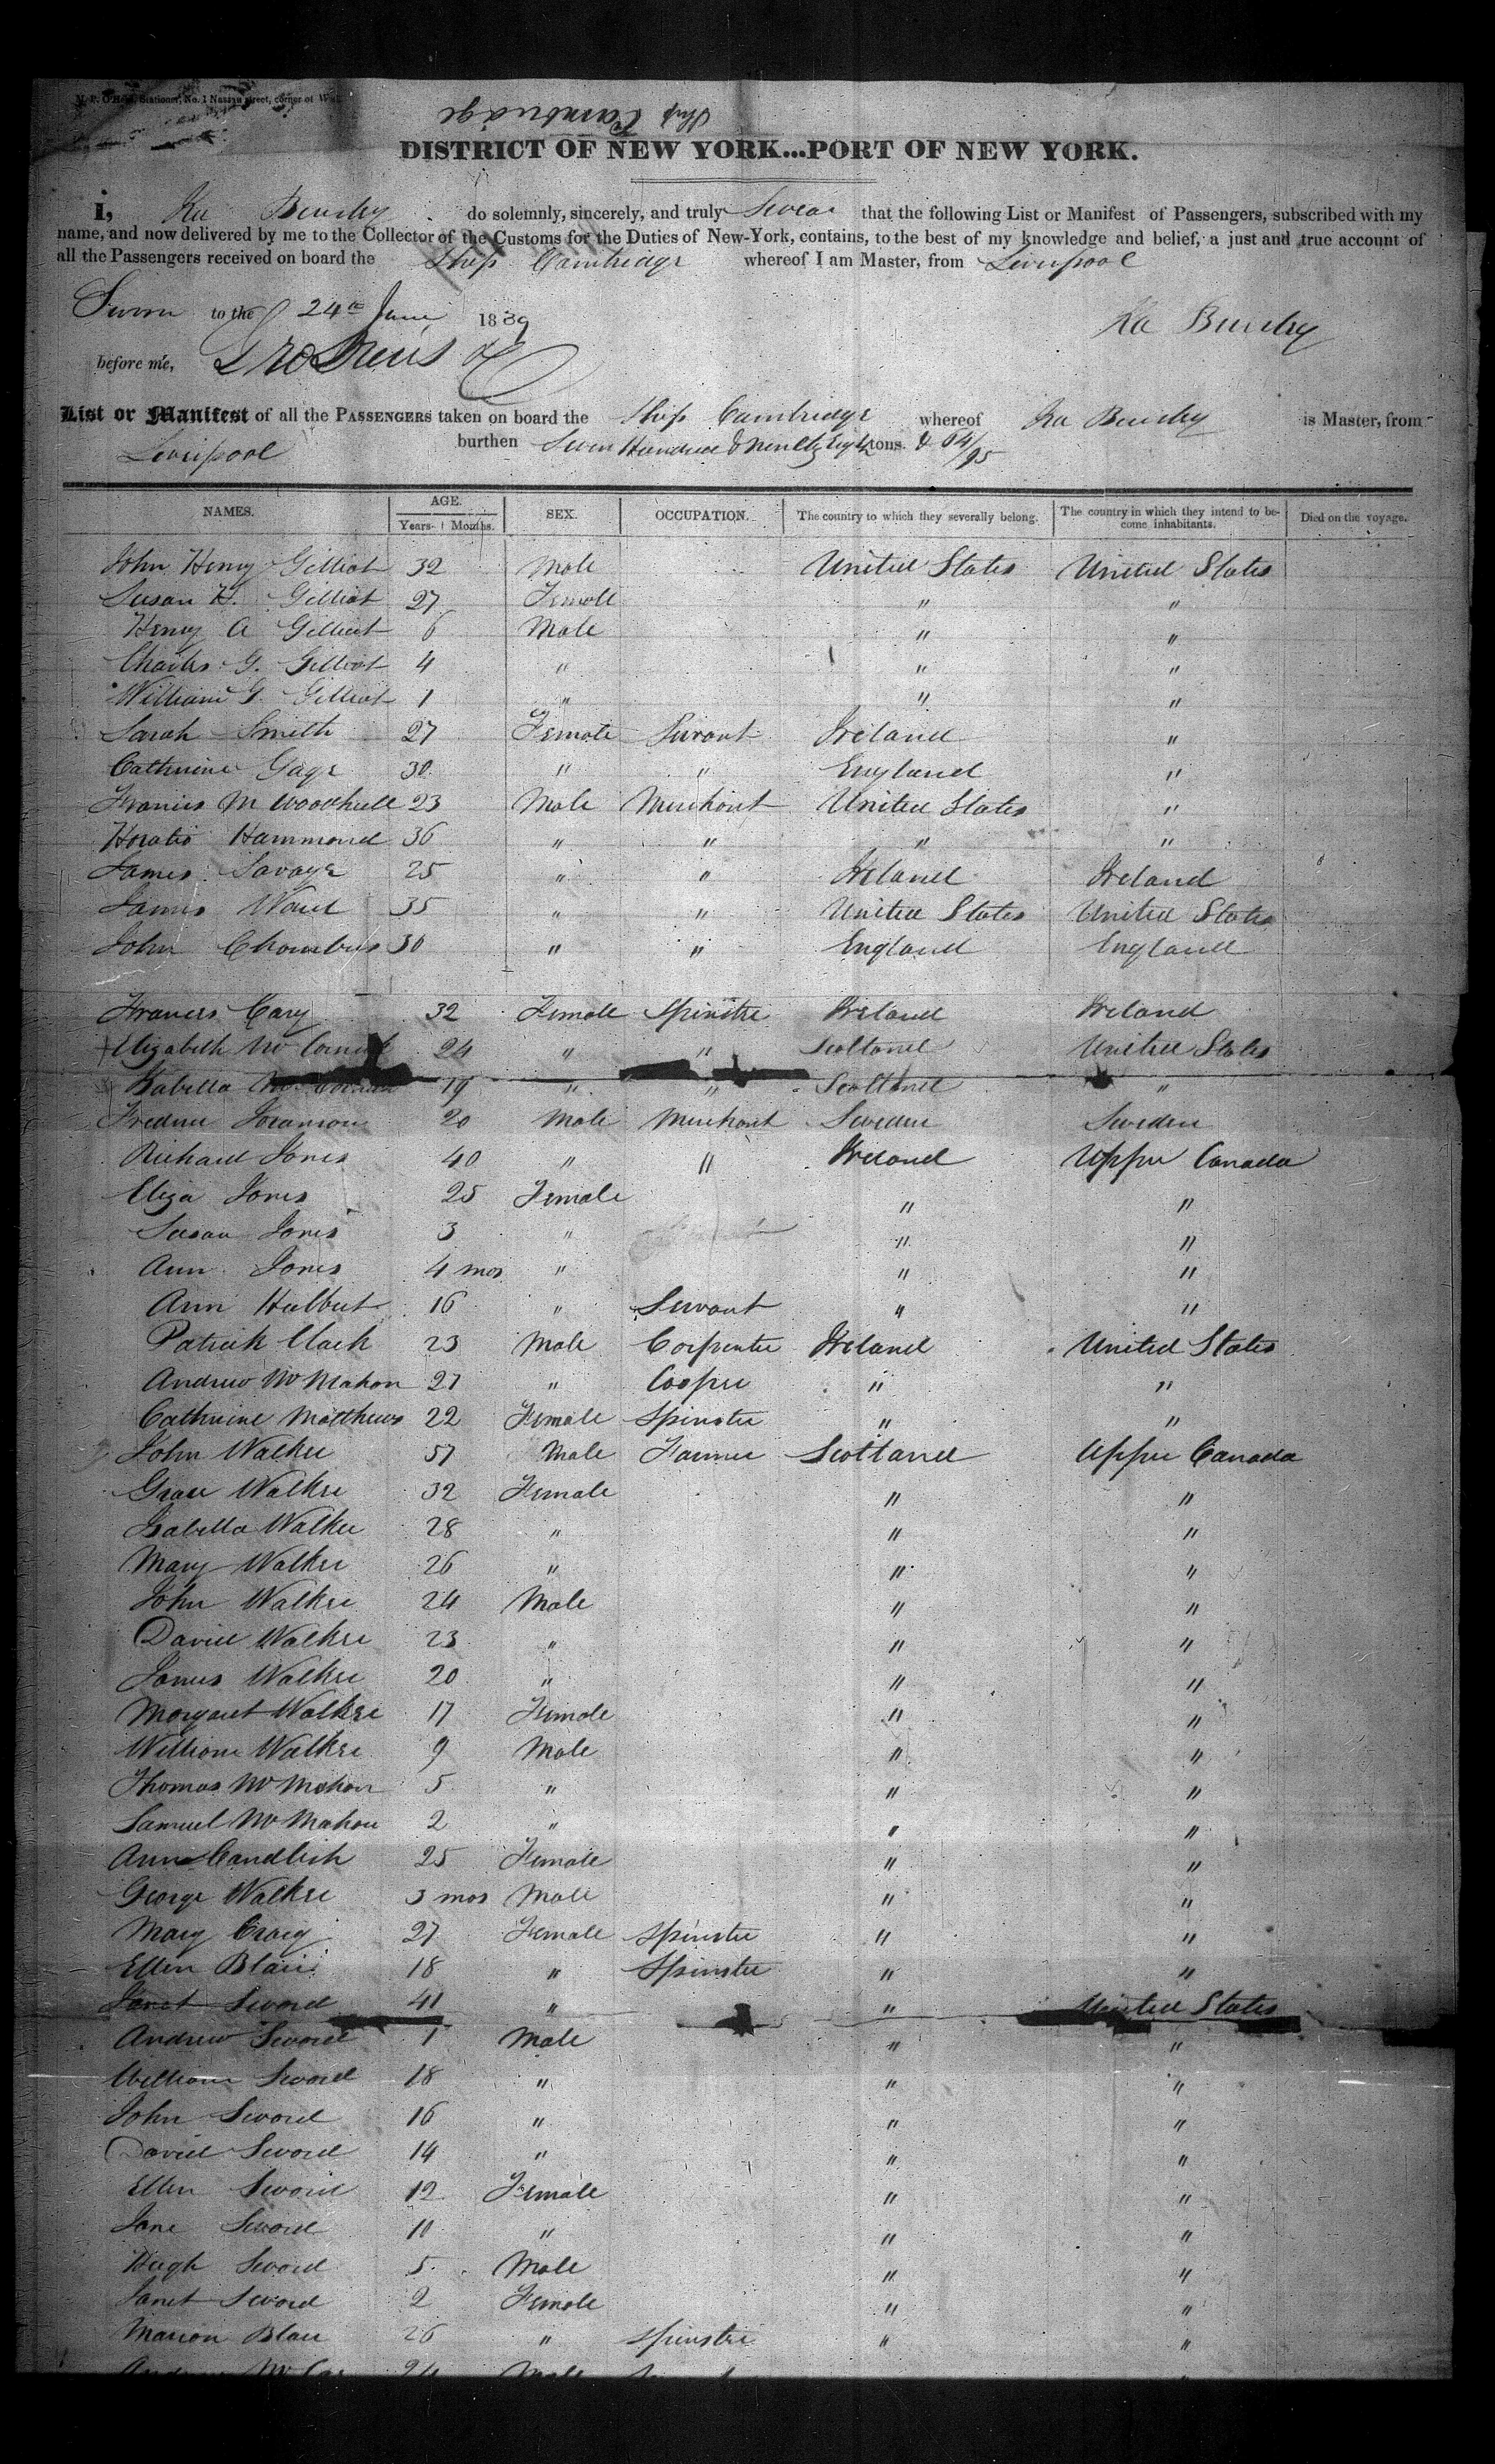 Ship Cambridge
DISTRICT OF NEW YORK...PORT OF NEW YORK.
I, Ira Bursley do solemnly, sincerely, and truly Swear that the following List or Manifest of Passengers, subscribed with my
name, and now delivered by me to the Collector of the Customs for the Duties of New-York, contains, to the best of my knowledge and belief, a just and true account of
all the Passengers received on board the Ship Cambridge whereof I am Master, from Liverpool
Sworn to the 24th June 1839 Ira Bursley
before me,
List or Manifest of all the PASSENGERS taken on board the Ship Cambridge whereof Ira Bursley is Master, from
Liverpool burthen Seven Hundred & Ninety Eight tons. & 04/95
NAMES. AGE. SEX. OCCUPATION. The country to which they severally belong. The country in which they intend to be-
Years. Months. come inhabitants. Died on the voyage.
John Henry Gilliat 32 Male United States United States
Susan H. Gilliat 27 Female " "
Henry A Gilliat 6 Male " "
Charles G. Gilliat 4 " " "
William G. Gilliat 1 " " "
Sarah Smith 27 Female Servant Ireland "
Catherine Gage 30 " " England "
Francis M Woodhull 23 Male Merchant United States "
Horatio Hammond 36 " " " "
James Savage 25 " " Ireland Ireland
James Ward 35 " " United States United States
John Chambers 30 " " England England
Frances Cary 32 Female Spinster Ireland Ireland
Elizabeth McCormick 24 " " Scotland United States
Isabella 19 " " Scotland "
20 Male Merchant Sweden Sweden
Richard Jones 40 " " Ireland Upper Canada
Eliza Jones 25 Female " "
Susan Jones 3 " " "
Ann Jones 4 mos " " "
Ann Hulbert 16 " Servant " "
Patrick Clark 23 Male Carpenter Ireland United States
Andrew McMahon 27 " Cooper " "
Catherine Matthews 22 Female Spinster " "
John Walker 57 Male Farmer Scotland Upper Canada
Grace Walker 32 Female " "
Isabella Walker 28 " " "
Mary Walker 26 " " "
John Walker 24 Male " "
David Walker 23 " " "
James Walker 20 " " "
Margaret Walker 17 Female " "
William Walker 9 Male " "
Thomas McMahon 5 " " "
Samuel McMahon 2 " " "
Ann Candlish 25 Female " "
George Walker 3 mos Male " "
Mary Craig 27 Female Spinster " "
Ellen Blair 18 " Spinster " "
Janet Sword 41 " " United States
Andrew Sword 1 Male " "
William Sword 18 " " "
John Sword 16 " " "
David Sword 14 " " "
Ellen Sword 12 Female " "
Jane Sword 10 " " "
Hugh Sword 5 Male " "
Janet Sword 2 Female " "
Marion Blair 26 " Spinster " "